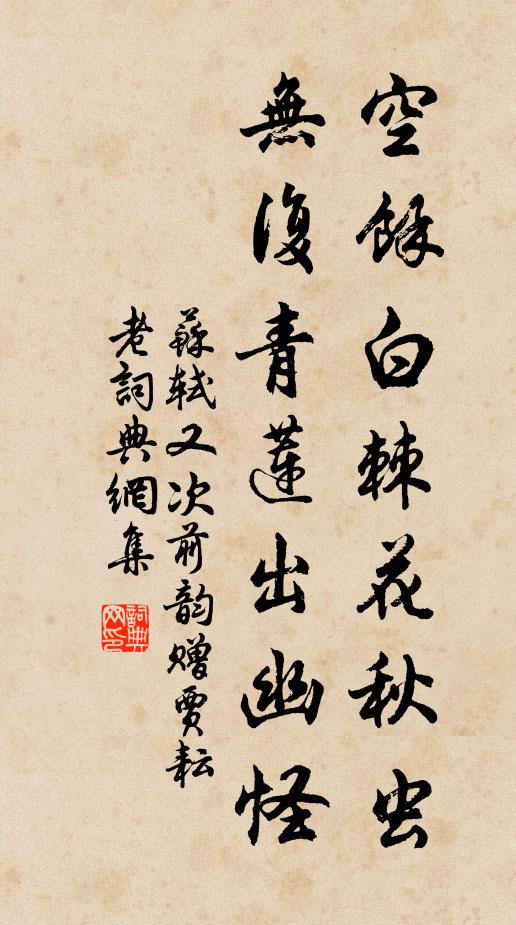 空餘白棘花秋虫
無復青蓮出幽怪
蘇軾又次前韵赠賈耘
老詞典網集
詞典网印